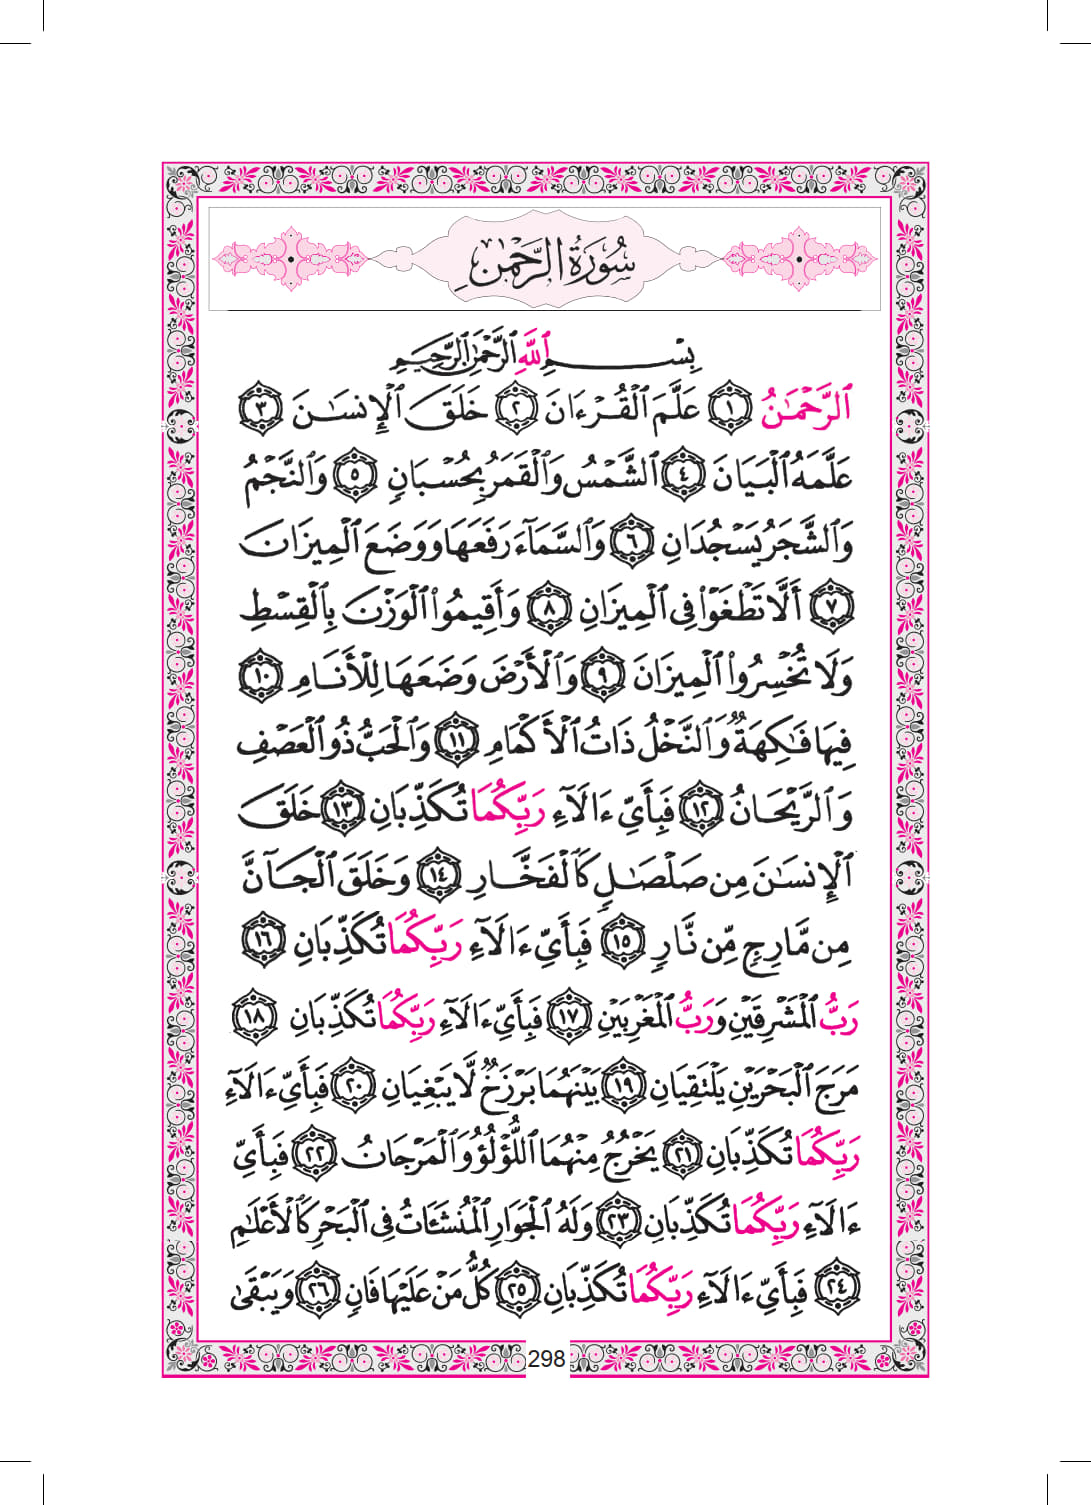 سُورَةُ الرَّحْمَٰنِ
بِسْمِ ٱللَّهِ ٱلرَّحْمَٰنِ ٱلرَّحِيمِ
ٱلرَّحْمَـٰنُ ١ عَلَّمَ ٱلْقُرْءَانَ ٢ خَلَقَ ٱلْإِنسَـٰنَ ٣
عَلَّمَهُ ٱلْبَيَانَ ٤ ٱلشَّمْسُ وَٱلْقَمَرُ بِحُسْبَانٍ ٥ وَٱلنَّجْمُ
وَٱلشَّجَرُ يَسْجُدَانِ ٦ وَٱلسَّمَآءَ رَفَعَهَا وَوَضَعَ ٱلْمِيزَانَ
٧ أَلَّا تَطْغَوْا۟ فِى ٱلْمِيزَانِ ٨ وَأَقِيمُوا۟ ٱلْوَزْنَ بِٱلْقِسْطِ
وَلَا تُخْسِرُوا۟ ٱلْمِيزَانَ ٩ وَٱلْأَرْضَ وَضَعَهَا لِلْأَنَامِ ١٠
فِيهَا فَـٰكِهَةٌ وَٱلنَّخْلُ ذَاتُ ٱلْأَكْمَامِ ١١ وَٱلْحَبُّ ذُو ٱلْعَصْفِ
وَٱلرَّيْحَانُ ١٢ فَبِأَىِّ ءَالَآءِ رَبِّكُمَا تُكَذِّبَانِ ١٣ خَلَقَ
ٱلْإِنسَـٰنَ مِن صَلْصَـٰلٍ كَٱلْفَخَّارِ ١٤ وَخَلَقَ ٱلْجَآنَّ
مِن مَّارِجٍ مِّن نَّارٍ ١٥ فَبِأَىِّ ءَالَآءِ رَبِّكُمَا تُكَذِّبَانِ ١٦
رَبُّ ٱلْمَشْرِقَيْنِ وَرَبُّ ٱلْمَغْرِبَيْنِ ١٧ فَبِأَىِّ ءَالَآءِ رَبِّكُمَا تُكَذِّبَانِ ١٨
مَرَجَ ٱلْبَحْرَيْنِ يَلْتَقِيَانِ ١٩ بَيْنَهُمَا بَرْزَخٌ لَّا يَبْغِيَانِ ٢٠ فَبِأَىِّ ءَالَآءِ
رَبِّكُمَا تُكَذِّبَانِ ٢١ يَخْرُجُ مِنْهُمَا ٱللُّؤْلُؤُ وَٱلْمَرْجَانُ ٢٢ فَبِأَىِّ
ءَالَآءِ رَبِّكُمَا تُكَذِّبَانِ ٢٣ وَلَهُ ٱلْجَوَارِ ٱلْمُنشَـَٔاتُ فِى ٱلْبَحْرِ كَٱلْأَعْلَـٰمِ
٢٤ فَبِأَىِّ ءَالَآءِ رَبِّكُمَا تُكَذِّبَانِ ٢٥ كُلُّ مَنْ عَلَيْهَا فَانٍ ٢٦ وَيَبْقَىٰ
298